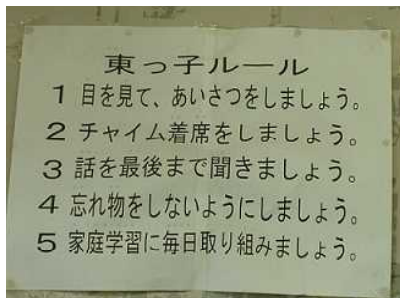 東っ子ルール
1 目を見て、あいさつをしましょう。
2 チャイム着席をしましょう。
3 話を最後まで聞きましょう。
4 忘れ物をしないようにしましょう。
5 家庭学習に毎日取り組みましょう。